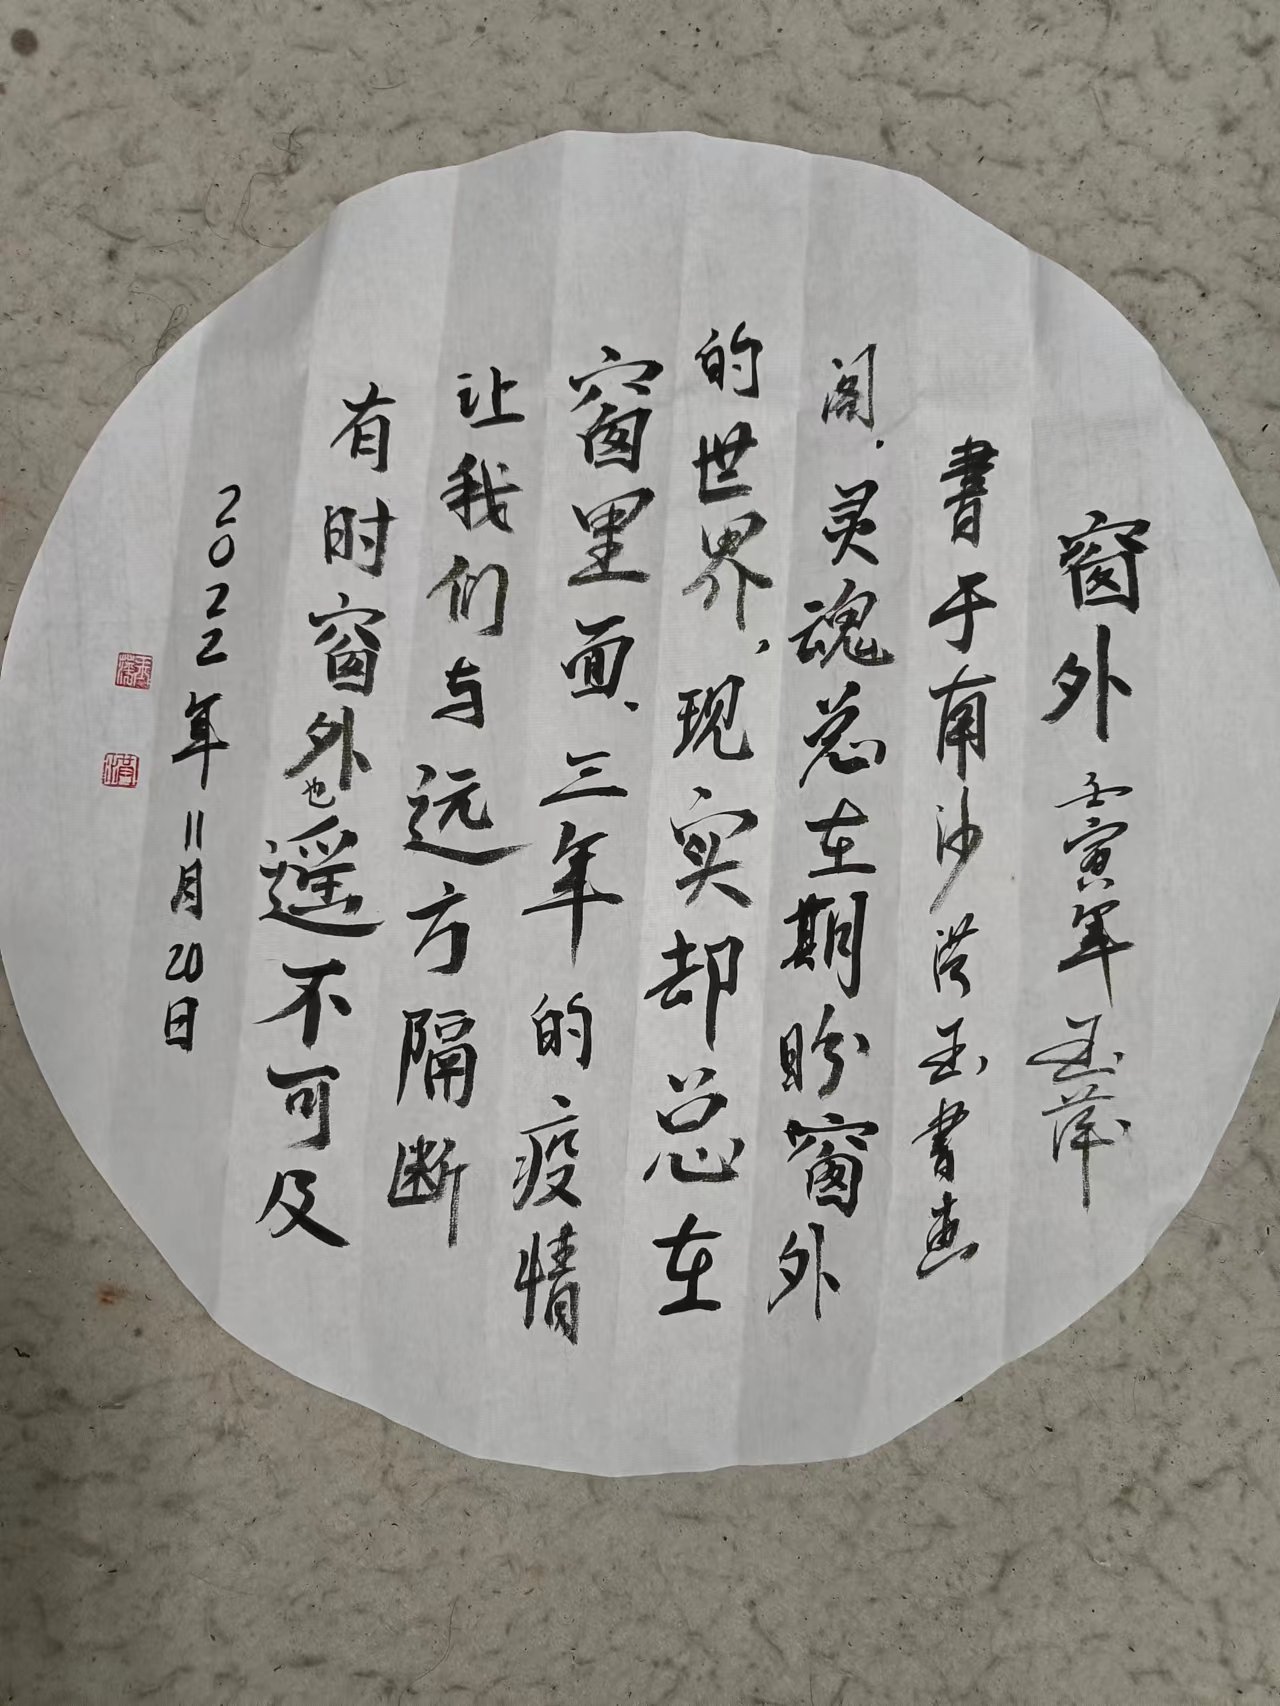 窗外 壬寅年玉萍
書于南沙湾玉書画
阁,灵魂总在期盼窗外
的世界,现实却总在
窗里面,三年的疫情
让我们与远方隔断
有时窗外也遥不可及
2022年11月20日